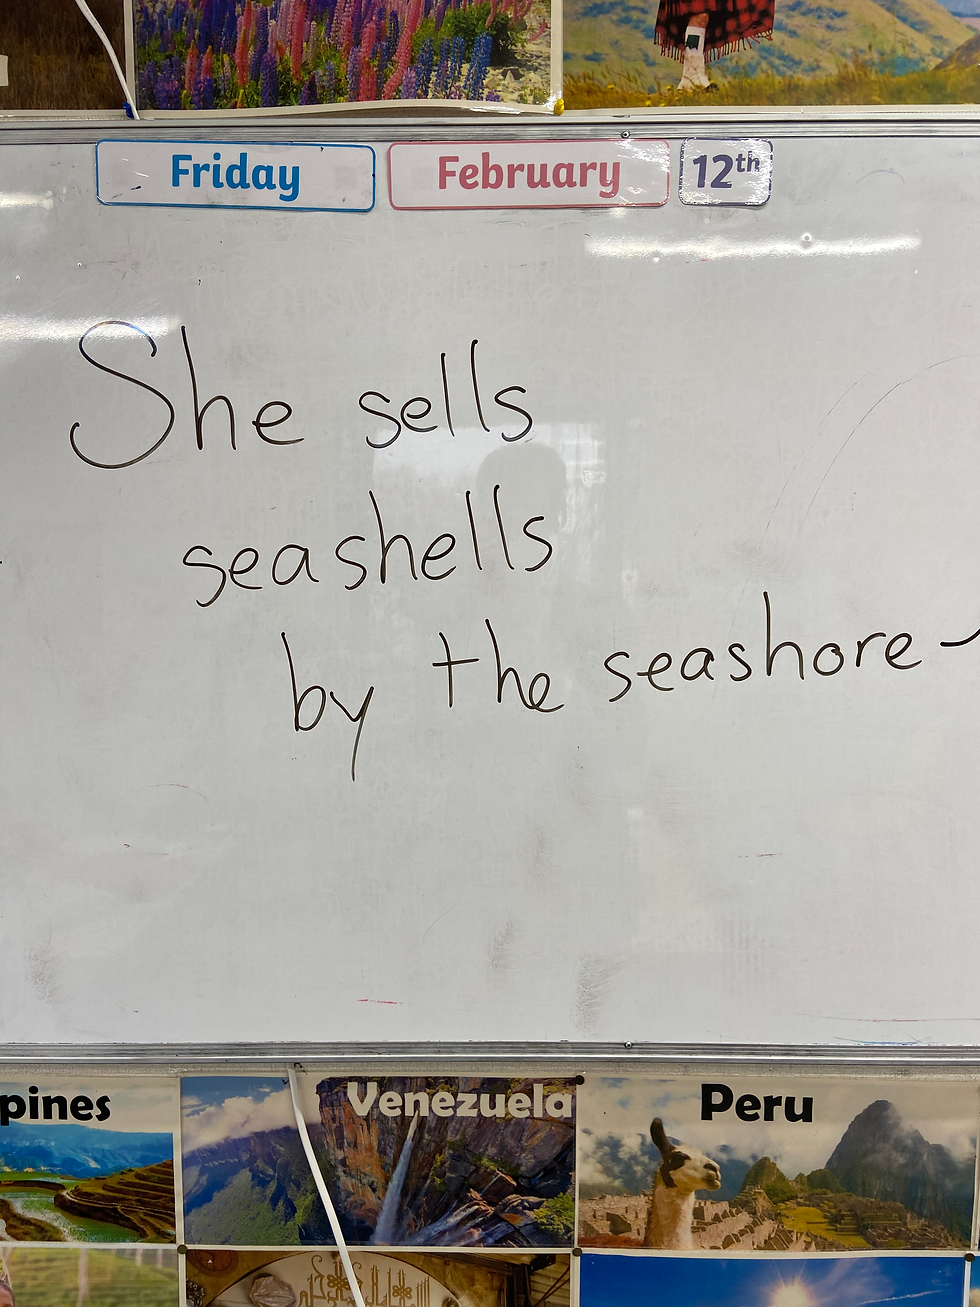 Friday February 12th
She sells
seashells
by the seashore
pines Venezuela Peru